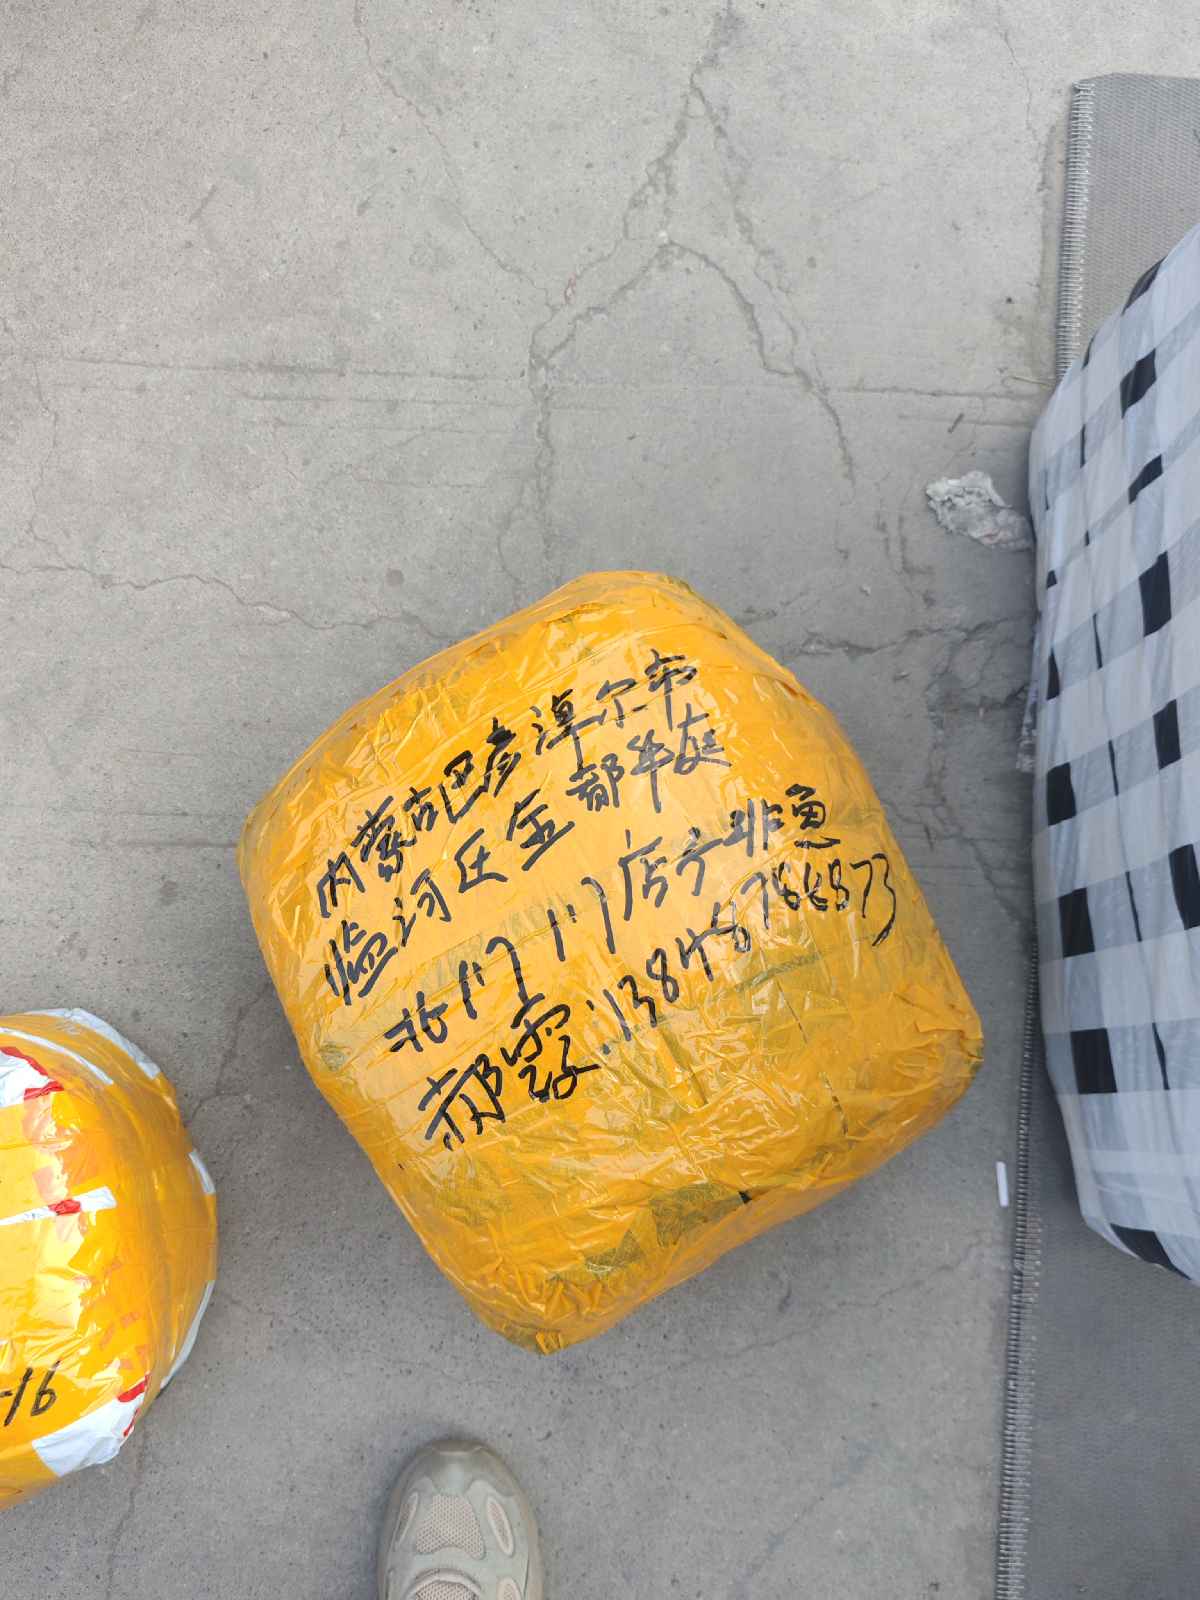 内蒙古巴彦淖尔市
临河区金都华庭
北门门店产非鱼
郝霞:13848788873
-16